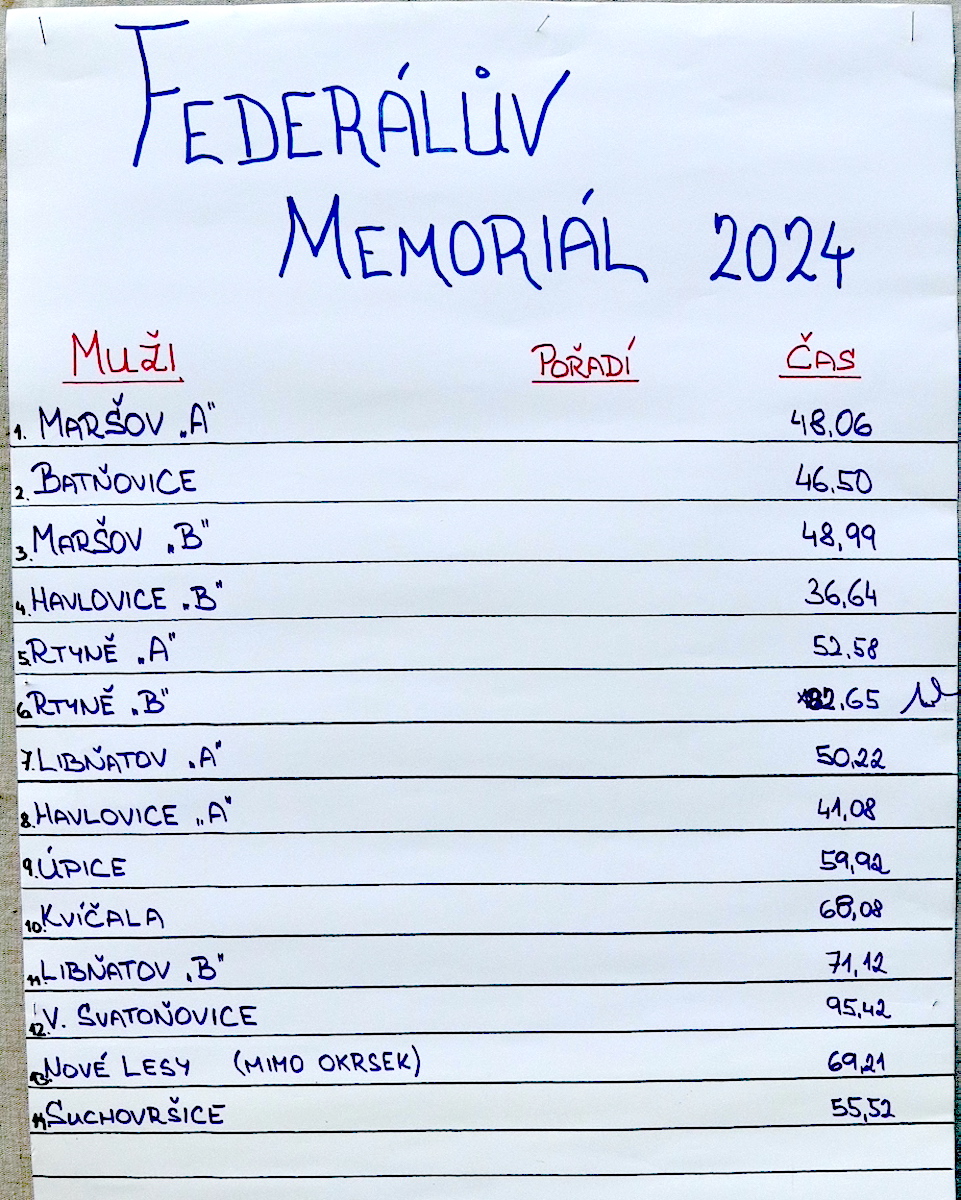 FEDERÁLŮV
MEMORIÁL 2024
MUŽI POŘADÍ ČAS
1. MARŠOV „A" 48,06
2. BATŇOVICE 46,50
3. MARŠOV „B" 48,99
4. HAVLOVICE „B" 36,64
5. RTYNĚ „A" 52,58
6. RTYNĚ „B"
7. LIBŇATOV „A" 50,22
8. HAVLOVICE „A" 41,08
9. ÚPICE 59,92
10. KVÍČALA 68,08
11. LIBŇATOV „B" 71,12
12. V. SVATOŇOVICE 95,42
13. NOVÉ LESY (MIMO OKRSEK) 69,21
14. SUCHOVRŠICE 55,52